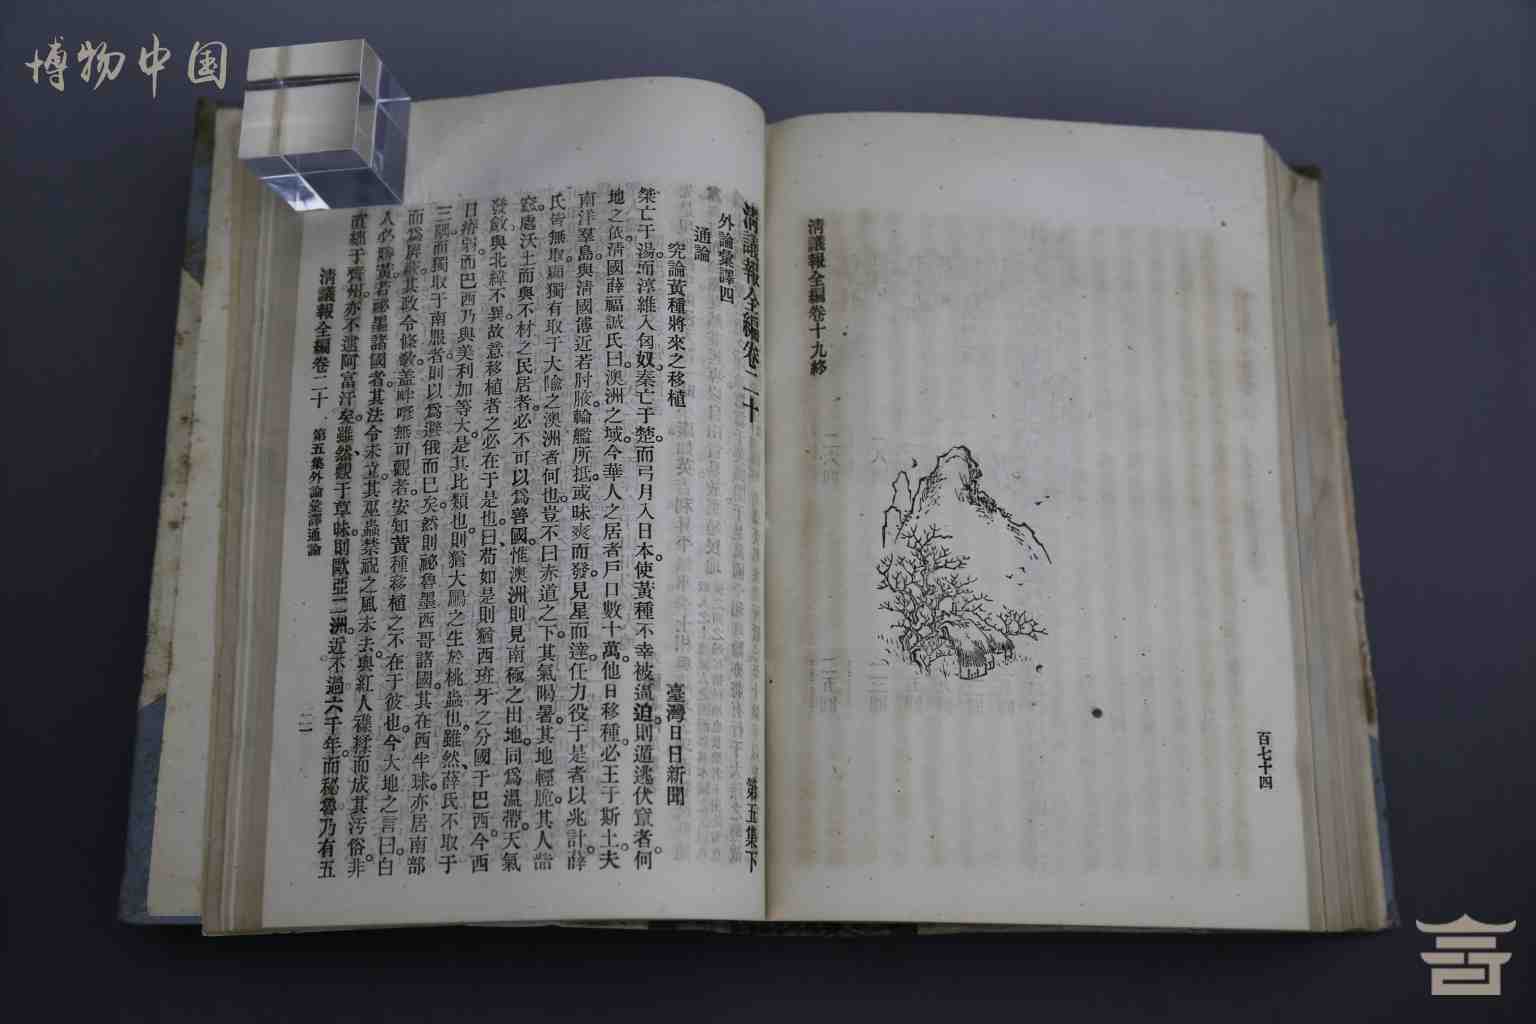 博物中国
清議報全編卷十九終
百七十四
清議報全編卷二十
第五集下
外論彙譯四
通論
究論黃種將來之移植
臺灣日日新聞
桀亡于湯而淳維入匈奴。秦亡于楚。而弓月入日本。使黃種不幸被逼迫。則遁逃伏竄者。何
地之依。清國薛福誠氏曰。澳洲之域。今華人之居者戶口數十萬。他日移種。必王于斯土。夫
南洋羣島。與清國傅近若肘腋。輪艦所抵。或昧爽而發。見星而達。任力役于是者以兆計。薛
氏皆無取。顧獨有取于大陯之澳洲者何也。豈不曰赤道之下。其氣暍暑。其地輕脆。其人啙
窳。處沃土而與不材之民居者。必不可以爲善國。惟澳洲則見南極之出地。同爲溫帶。天氣
發斂與北緯不異。故意移植者之必在于是也。曰苟如是。則猶西班牙之分國于巴西。今西
日瘠弱。而巴西乃與美利加等大。是其比類也。則猶大鵬之生於桃蟲也。雖然。薛氏不取于
三嵎而獨取于南服者。則以爲避俄而已矣。然則祕魯墨西哥諸國。其在西半球。亦居南部
而爲
其政令條敎。盖
無可觀者。安知黃種移植之不在于彼也。今大地之言曰。白
人必勝黃。若祕墨諸國者。其法令未立。其巫蟲禁祝之風未去。與紅人糅而成其汚俗。非
直絀于齊州。亦不逮阿富汗矣。雖然。觀于草昧。則歐亞二洲。近不過六千年。而秘魯乃有五
清議報全編卷二十
第五集外論彙譯通論
一